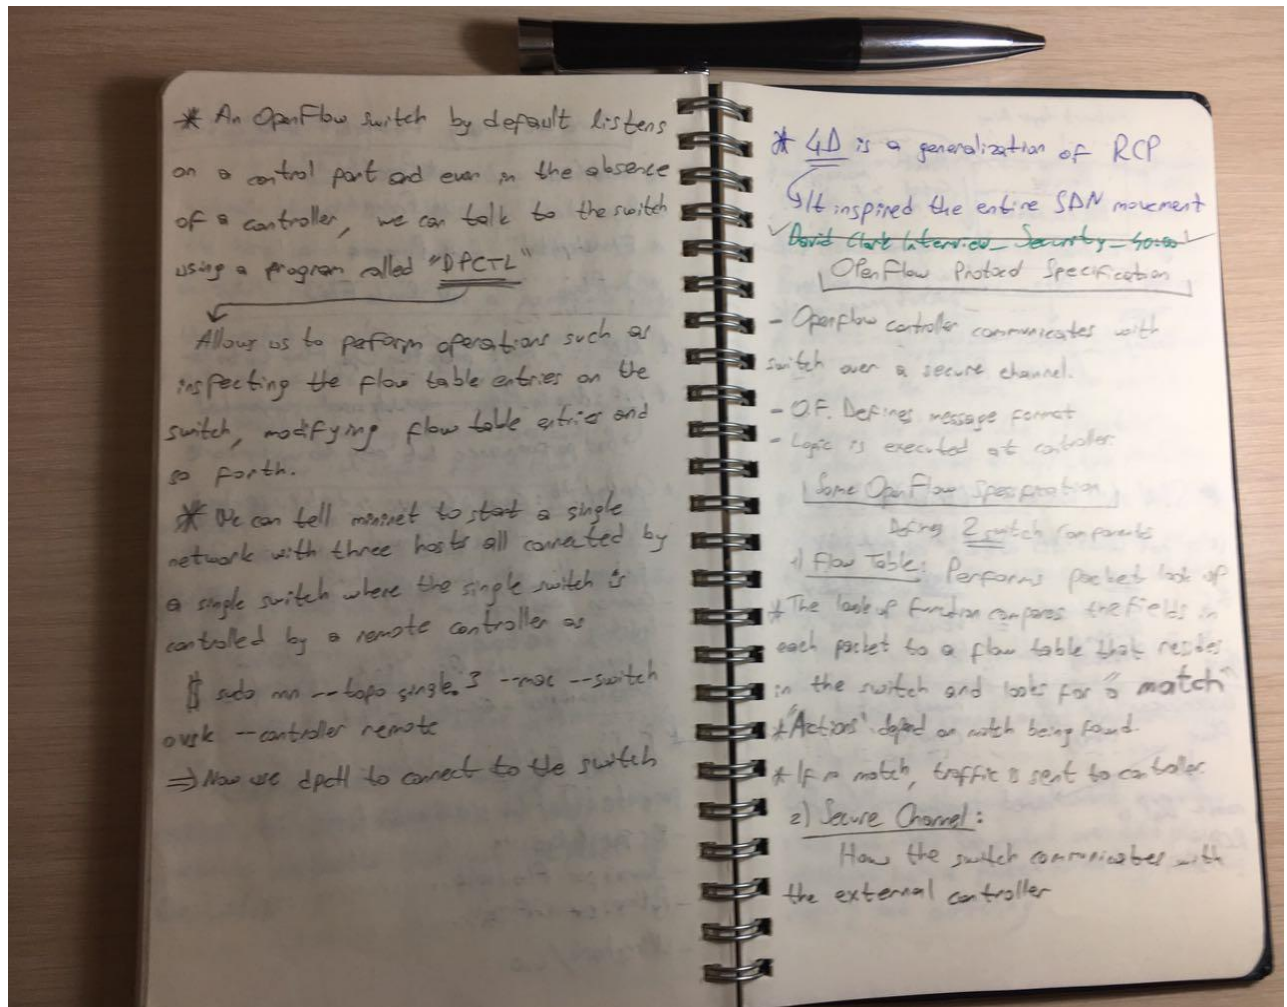 * An OpenFlow switch by default listens
on a control port and even in the absence
of a controller, we can talk to the switch
using a program called "DPCTL"
Allows us to perform operations such as
inspecting the flow table entries on the
switch, modifying flow table entries and
so forth.
* We can tell mininet to start a single
network with three hosts all connected by
a single switch where the single switch is
controlled by a remote controller as
$ sudo mn --topo single.3 --mac --switch
ovsk --controller remote
=> Now use dpctl to connect to the switch
* 4D is a generalization of RCP
It inspired the entire SDN movement
✓ David Clark Interview_Security_
OpenFlow Protocol Specification
- Openflow controller communicates with
switch over a secure channel.
- O.F. Defines message format
- Logic is executed at controller.
Some OpenFlow Specification
Defines 2 switch components
1) Flow Table: Performs packet look up
* The look up function compares the fields in
each packet to a flow table that resides
in the switch and looks for "a match"
* "Actions" depend on match being found.
* If no match, traffic is sent to controller.
2) Secure Channel:
How the switch communicates with
the external controller